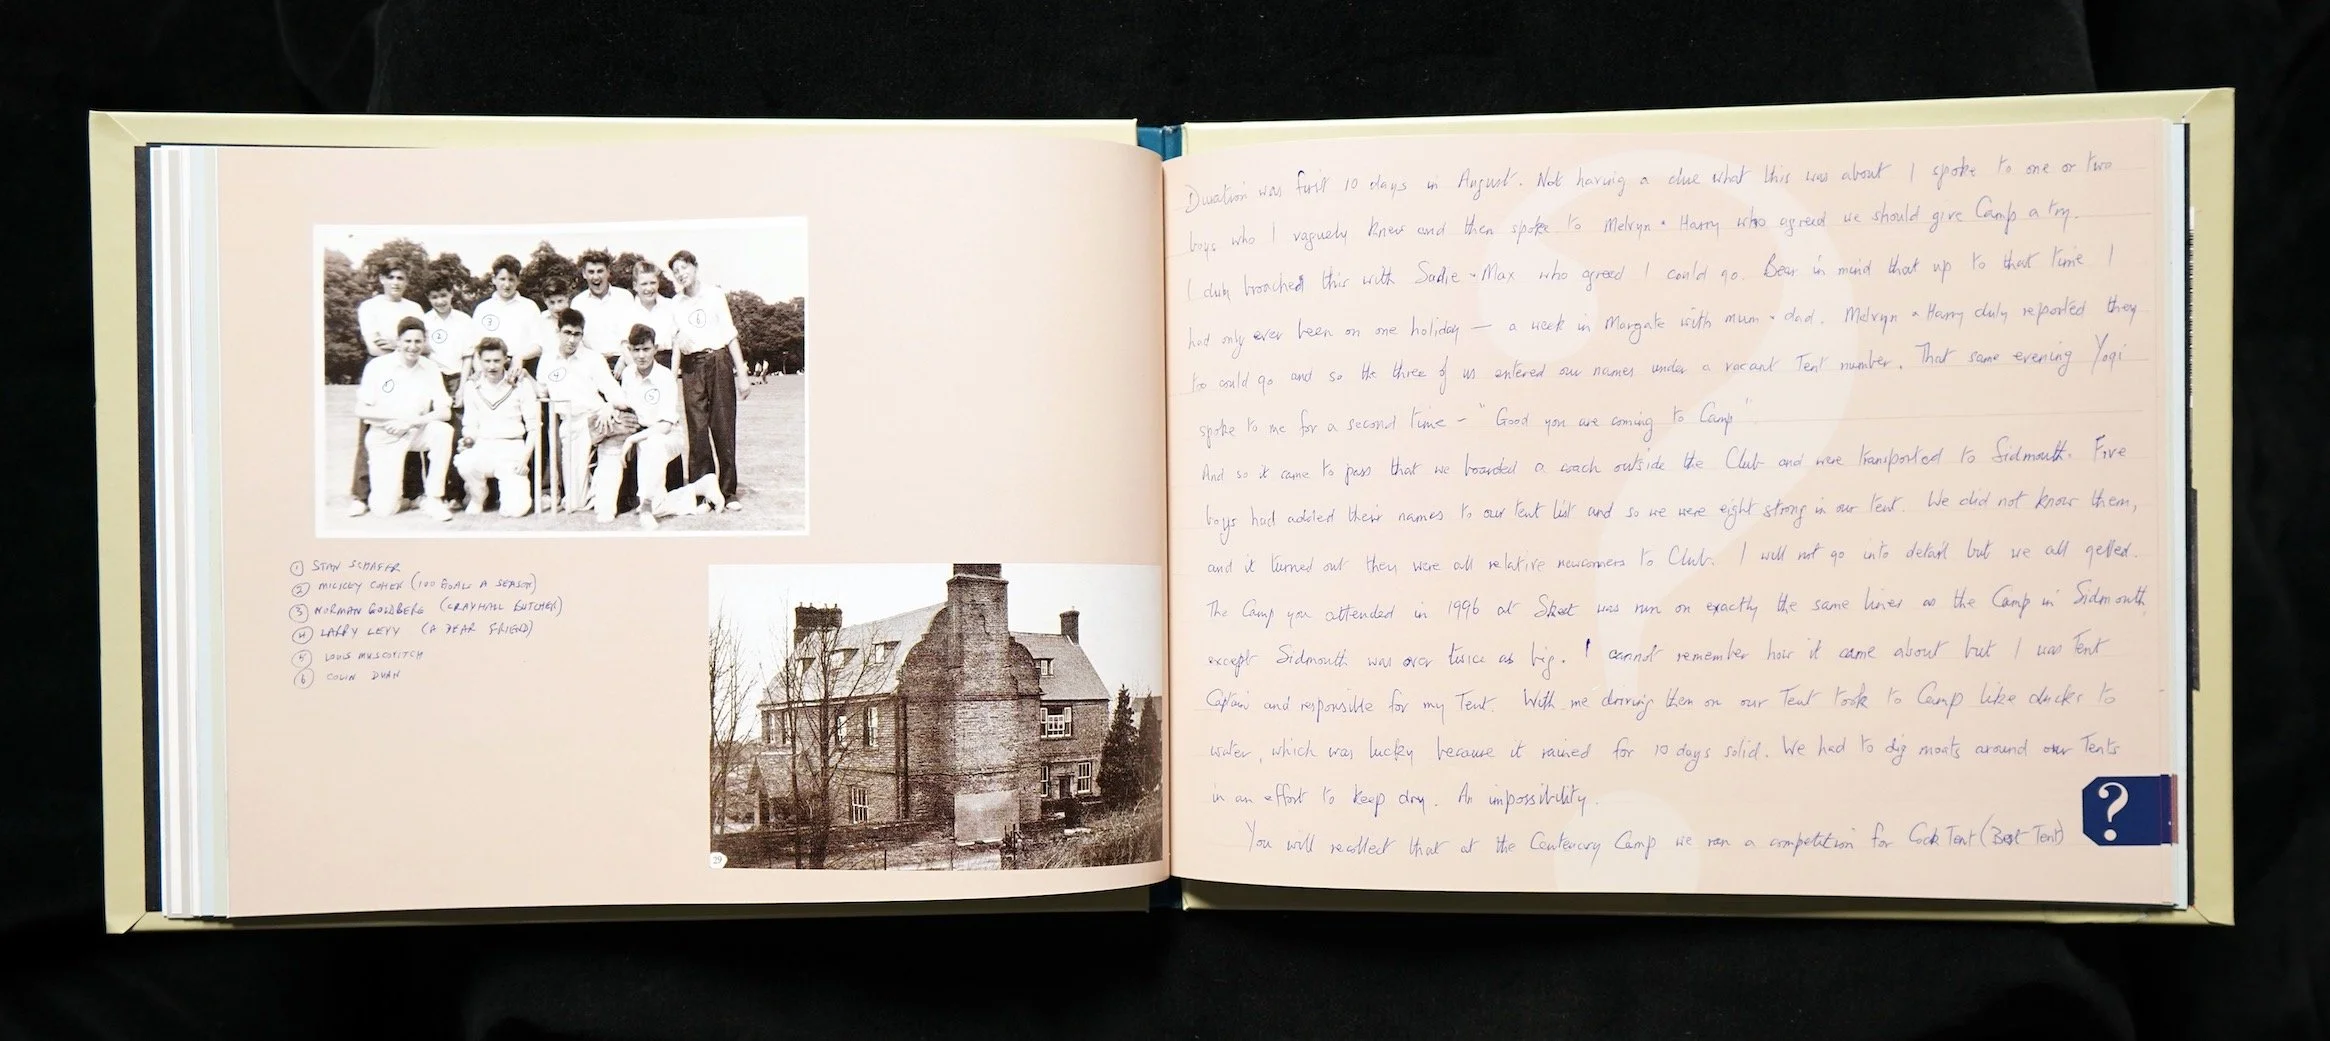 1
2
3
4
5
6
① STAN SCHAFER
② MICKEY COHEN (100 GOALS A SEASON)
③ NORMAN GOLDBERG (GRAYHALL BUTCHER)
④ LARRY LEVY (A DEAR FRIEND)
⑤ LOUIS MUSCOVITCH
⑥ COLIN
29
Duration was first 10 days in August. Not having a clue what this was about I spoke to one or two
boys who I vaguely knew and then spoke to Melvyn + Harry who agreed we should give Camp a try.
I duly broached this with Sadie + Max who agreed I could go. Bear in mind that up to that time I
had only ever been on one holiday — a week in Margate with mum + dad. Melvyn + Harry duly reported they
too could go and so the three of us entered our names under a vacant Tent number. That same evening Yogi
spoke to me for a second time - "Good you are coming to Camp"
And so it came to pass that we boarded a coach outside the Club and were transported to Sidmouth. Five
boys had added their names to our tent list and so we were eight strong in our tent. We did not know them,
and it turned out they were all relative newcomers to Club. I will not go into detail but we all gelled.
The Camp you attended in 1996 at Skeet was run on exactly the same lines as the Camp in Sidmouth
except Sidmouth was over twice as big. I cannot remember how it came about but I was Tent
Captain and responsible for my Tent. With me driving them on our Tent took to Camp like ducks to
water, which was lucky because it rained for 10 days solid. We had to dig moats around our Tents
in an effort to keep dry. An impossibility.
You will recollect that at the Centenary Camp we ran a competition for Cock Tent (Best Tent)
?